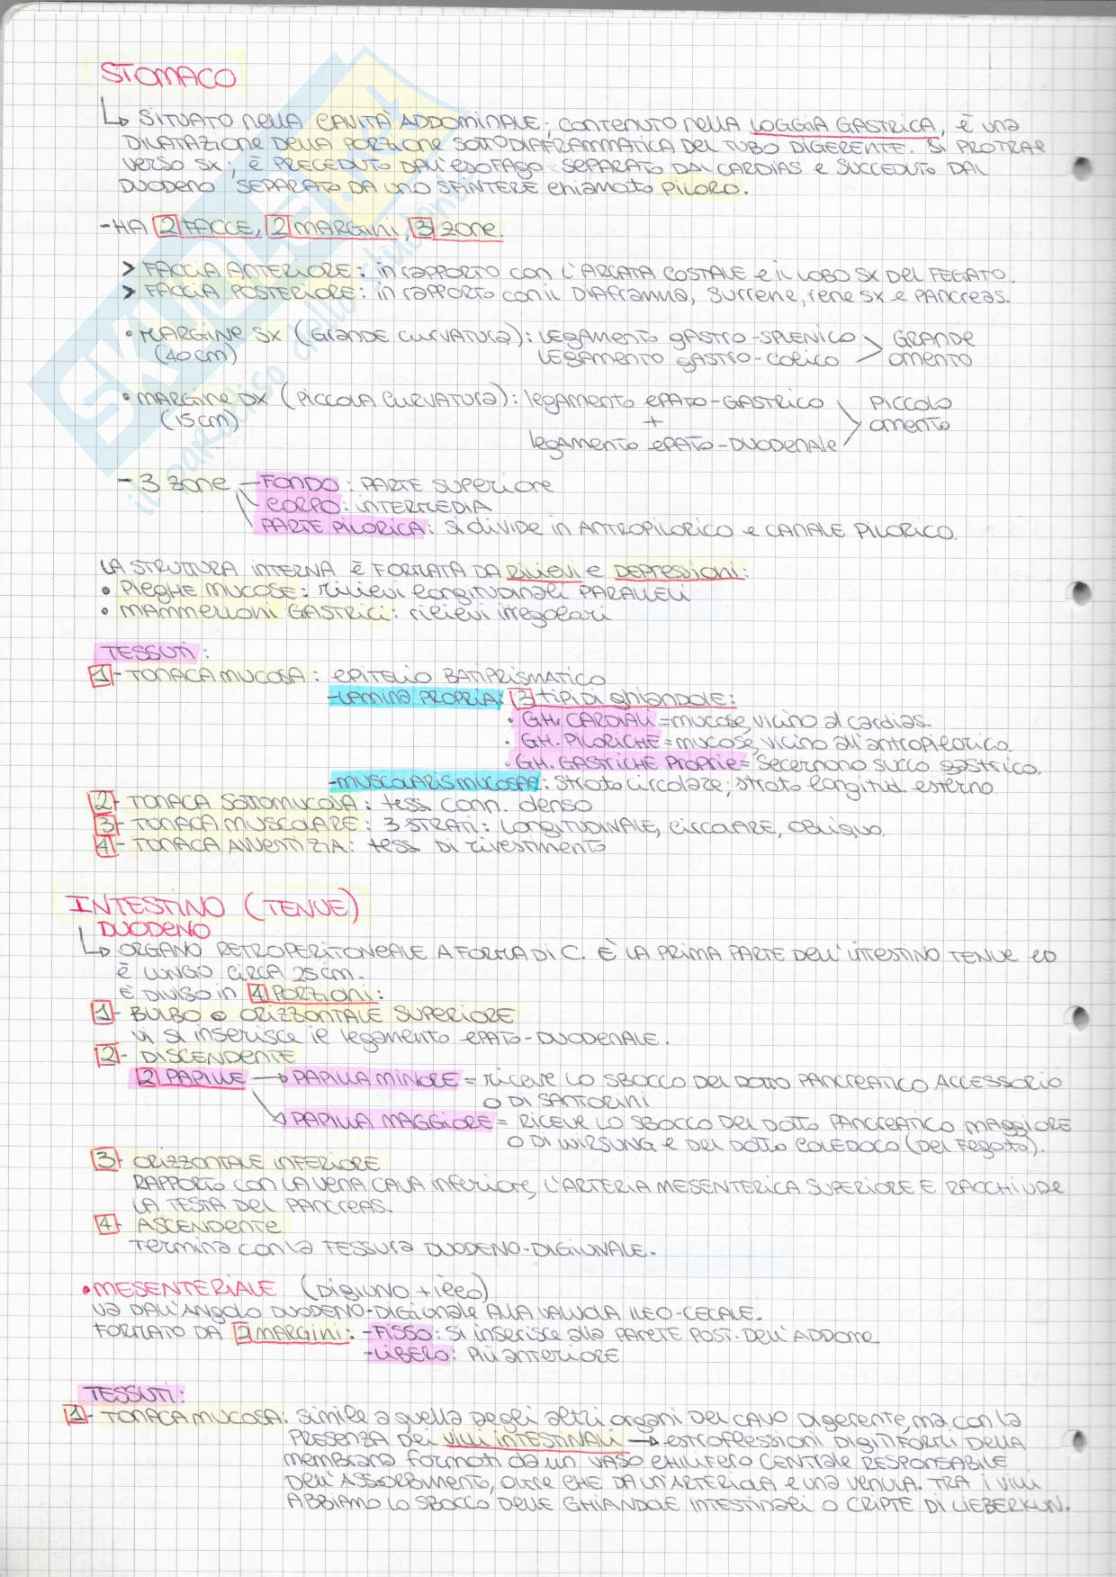 STOMACO
↳ SITUATO NELLA CAVITÀ ADDOMINALE; CONTENUTO NELLA LOGGIA GASTRICA, È UNA
DILATAZIONE DELLA PORZIONE SOTTODIAFRAMMATICA DEL TUBO DIGERENTE. SI PROTRAE
VERSO SX, È PRECEDUTO DALL'ESOFAGO SEPARATO DAL CARDIAS E SUCCEDUTO DAL
DUODENO SEPARATO DA UNO SFINTERE chiamato PILORO.
- HA 2 FACCE, 2 MARGINI, 3 ZONE.
> FACCIA ANTERIORE: in rapporto con L'ARCATA COSTALE e il LOBO SX DEL FEGATO.
> FACCIA POSTERIORE: in rapporto con il DIAFRAMMA, SURRENE, rene SX e PANCREAS.
• MARGINE SX (GRANDE CURVATURA): LEGAMENTO GASTRO-SPLENICO > GRANDE
(40 cm) LEGAMENTO GASTRO-COLICO omento
• MARGINE DX (PICCOLA CURVATURA): legamento EPATO-GASTRICO > PICCOLO
(15 cm) + omento
legamento EPATO-DUODENALE
- 3 ZONE - FONDO: PARTE SUPERIORE
CORPO: INTERMEDIA
PARTE PILORICA: SI divide in ANTROPILORICO e CANALE PILORICO.
LA STRUTTURA INTERNA È FORMATA DA Rilievi e DEPRESSIONI:
• PIEGHE MUCOSE: rilievi longitudinali PARALLELI
• MAMMELLONI GASTRICI: rilievi irregolari
TESSUTI:
1 - TONACA MUCOSA: EPITELIO BATIPRISMATICO
- LAMINA PROPRIA: 3 TIPI DI ghiandole:
• GH. CARDIALI = mucose, vicino al cardias.
• GH. PILORICHE = mucose, vicino all'antropilorico.
• GH. GASTRICHE PROPRIE = secernono succo gastrico.
- MUSCOLARIS MUCOSAE: strato circolare; strato longitud. esterno
2 - TONACA SOTTOMUCOSA: tess. conn. denso
3 - TONACA MUSCOLARE: 3 STRATI: LONGITUDINALE, CIRCOLARE, OBLIQUO.
4 - TONACA AVVENTIZIA: tess. DI rivestimento
INTESTINO (TENUE)
DUODENO
↳ ORGANO RETROPERITONEALE A FORMA DI C. È LA PRIMA PARTE DELL'INTESTINO TENUE ED
È LUNGO CIRCA 25 cm.
È DIVISO in 4 PORZIONI:
1 - BULBO o ORIZZONTALE SUPERIORE
vi si inserisce il legamento EPATO-DUODENALE.
2 - DISCENDENTE
2 PAPILLE → PAPILLA MINORE = riceve LO SBOCCO DEL DOTTO PANCREATICO ACCESSORIO
O DI SANTORINI
↘ PAPILLA MAGGIORE = RICEVE LO SBOCCO DEL DOTTO PANCREATICO MAGGIORE
O DI WIRSUNG E DEL DOTTO COLEDOCO (DEL Fegato).
3 - ORIZZONTALE INFERIORE
RAPPORTO CON LA VENA CAVA INFERIORE, L'ARTERIA MESENTERICA SUPERIORE E RACCHIUDE
LA TESTA DEL PANCREAS.
4 - ASCENDENTE
Termina con la FESSURA DUODENO-DIGIUNALE.
• MESENTERIALE (DIGIUNO + ileo)
VA DALL'ANGOLO DUODENO-DIGIUNALE ALLA VALVOLA ILEO-CECALE.
FORMATO DA 2 MARGINI: - FISSO: SI inserisce alla PARETE POST. DELL'ADDOME
- LIBERO: PIÙ ANTERIORE
TESSUTI:
1 - TONACA MUCOSA: simile a quella degli altri organi DEL CAVO Digerente, ma con la
PRESENZA DEI VILLI INTESTINALI → estroflessioni DIGITIFORMI DELLA
membrana formati da un VASO CHILIFERO CENTRALE RESPONSABILE
DELL'ASSORBIMENTO, OLTRE CHE DA UN'ARTERIOLA e una venula. TRA i VILLI
ABBIAMO LO SBOCCO DELLE GHIANDOLE INTESTINALI O CRIPTE DI LIEBERKUN.